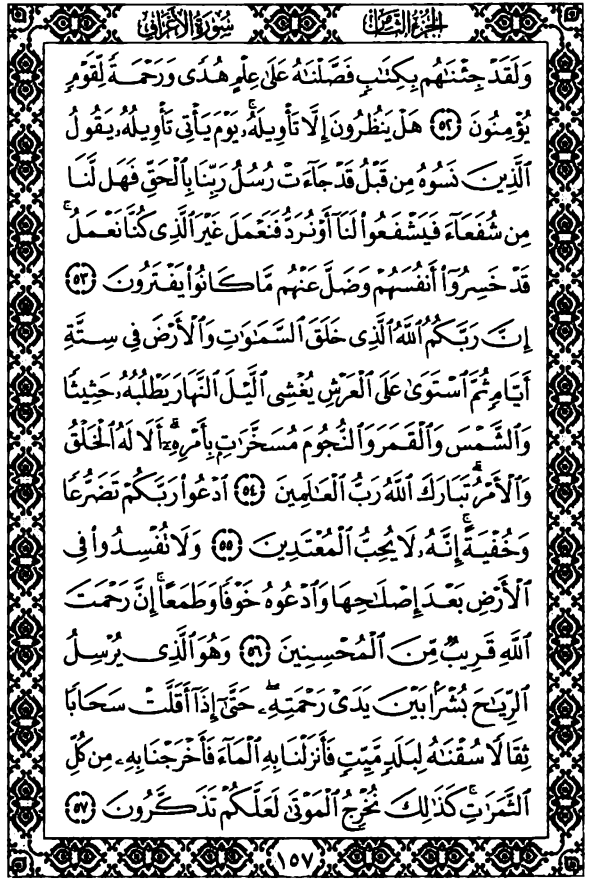 الجزء الثامن سورة الأعراف
وَلَقَدْ جِئْنَٰهُم بِكِتَٰبٍ فَصَّلْنَٰهُ عَلَىٰ عِلْمٍ هُدًى وَرَحْمَةً لِّقَوْمٍ
يُؤْمِنُونَ ٥٢ هَلْ يَنظُرُونَ إِلَّا تَأْوِيلَهُۥ ۚ يَوْمَ يَأْتِى تَأْوِيلُهُۥ يَقُولُ
ٱلَّذِينَ نَسُوهُ مِن قَبْلُ قَدْ جَآءَتْ رُسُلُ رَبِّنَا بِٱلْحَقِّ فَهَل لَّنَا
مِن شُفَعَآءَ فَيَشْفَعُوا۟ لَنَآ أَوْ نُرَدُّ فَنَعْمَلَ غَيْرَ ٱلَّذِى كُنَّا نَعْمَلُ ۚ
قَدْ خَسِرُوٓا۟ أَنفُسَهُمْ وَضَلَّ عَنْهُم مَّا كَانُوا۟ يَفْتَرُونَ ٥٣
إِنَّ رَبَّكُمُ ٱللَّهُ ٱلَّذِى خَلَقَ ٱلسَّمَٰوَٰتِ وَٱلْأَرْضَ فِى سِتَّةِ
أَيَّامٍ ثُمَّ ٱسْتَوَىٰ عَلَى ٱلْعَرْشِ يُغْشِى ٱلَّيْلَ ٱلنَّهَارَ يَطْلُبُهُۥ حَثِيثًا
وَٱلشَّمْسَ وَٱلْقَمَرَ وَٱلنُّجُومَ مُسَخَّرَٰتٍۭ بِأَمْرِهِۦٓ ۗ أَلَا لَهُ ٱلْخَلْقُ
وَٱلْأَمْرُ ۗ تَبَارَكَ ٱللَّهُ رَبُّ ٱلْعَٰلَمِينَ ٥٤ ٱدْعُوا۟ رَبَّكُمْ تَضَرُّعًا
وَخُفْيَةً ۚ إِنَّهُۥ لَا يُحِبُّ ٱلْمُعْتَدِينَ ٥٥ وَلَا تُفْسِدُوا۟ فِى
ٱلْأَرْضِ بَعْدَ إِصْلَٰحِهَا وَٱدْعُوهُ خَوْفًا وَطَمَعًا ۚ إِنَّ رَحْمَتَ
ٱللَّهِ قَرِيبٌ مِّنَ ٱلْمُحْسِنِينَ ٥٦ وَهُوَ ٱلَّذِى يُرْسِلُ
ٱلرِّيَٰحَ بُشْرًۢا بَيْنَ يَدَىْ رَحْمَتِهِۦ ۖ حَتَّىٰٓ إِذَآ أَقَلَّتْ سَحَابًا
ثِقَالًا سُقْنَٰهُ لِبَلَدٍ مَّيِّتٍ فَأَنزَلْنَا بِهِ ٱلْمَآءَ فَأَخْرَجْنَا بِهِۦ مِن كُلِّ
ٱلثَّمَرَٰتِ ۚ كَذَٰلِكَ نُخْرِجُ ٱلْمَوْتَىٰ لَعَلَّكُمْ تَذَكَّرُونَ ٥٧
١٥٧